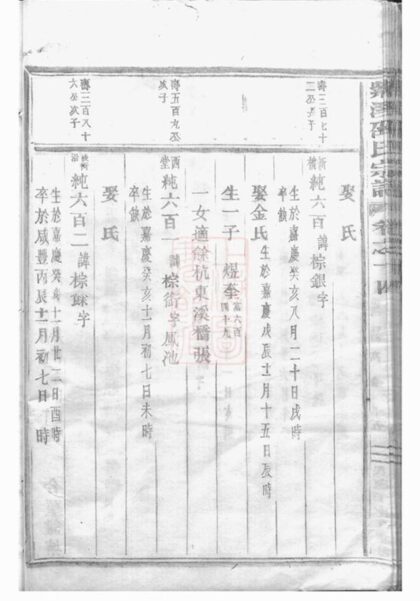 氏宗譜 卷之十四
壽三百七十
二丞子
壽五百九丞
丞子
壽三百八十
六丞亥子
娶 氏
純六百 諱棕銀 字
生於嘉慶癸亥八月二十日戌時
卒
娶金氏 生於嘉慶戊辰十二月十五日辰時
生一子 煜奎 富六百四十九
一女適餘杭東溪橋張
純六百一 諱棕衙 字鳳池
生於嘉慶癸亥十二月初七日未時
卒
娶 氏
純六百二 諱棕 字
生於嘉慶癸亥十一月廿二日酉時
卒於咸豐丙辰十一月初七日 時